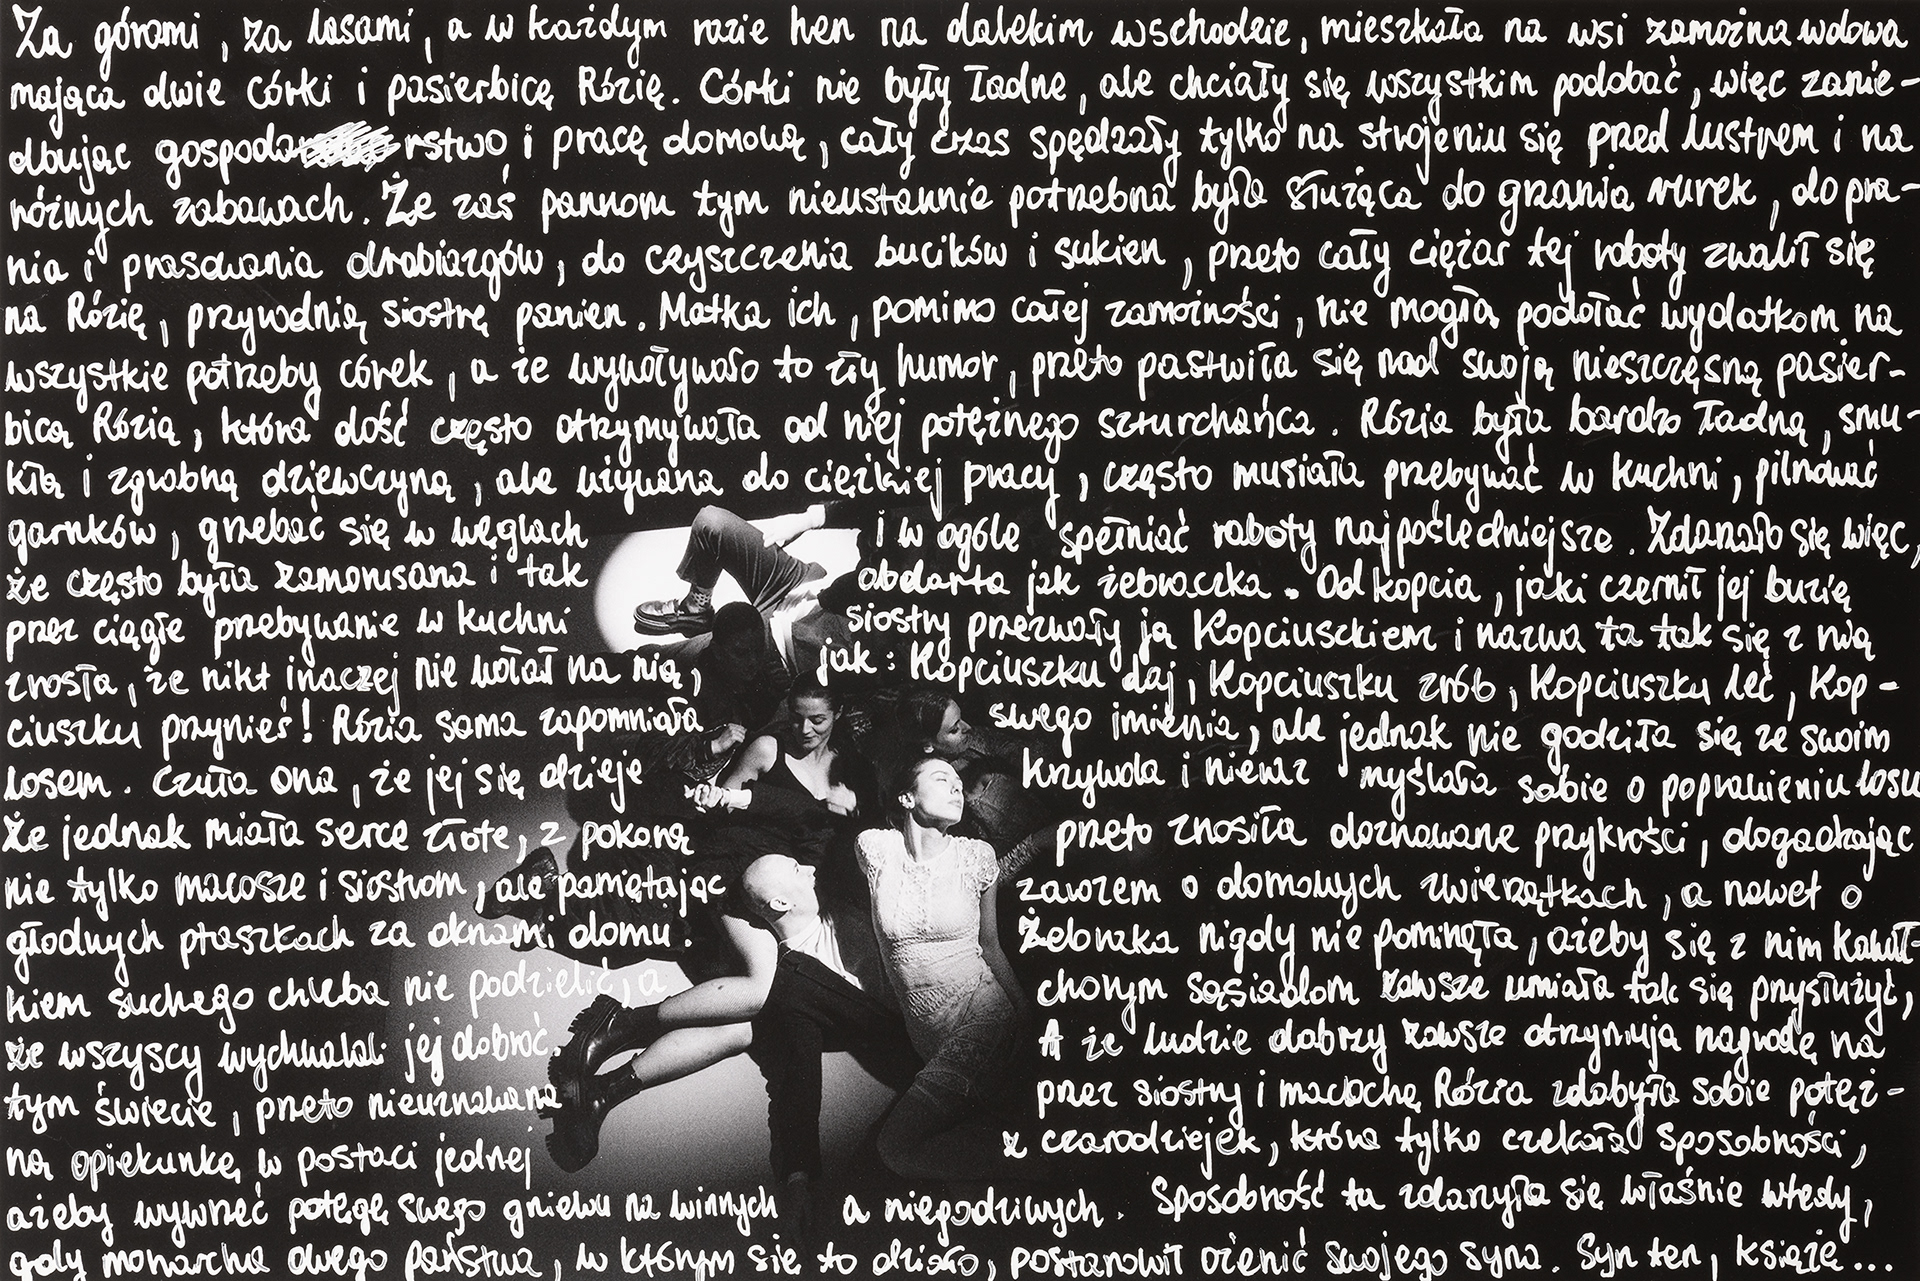 Za górami, za lasami, a w każdym razie hen na dalekim wschodzie, mieszkała na wsi zamożna wdowa
mająca dwie córki i pasierbicę Rózię. Córki nie były ładne, ale chciały się wszystkim podobać, więc zanie-
dbując gospodarstwo i pracę domową, cały czas spędzały tylko na strojeniu się przed lustrem i na
różnych zabawach. Że zaś pannom tym nieustannie potrzebna była służąca do grzania rurek, do pra-
nia i prasowania drobiazgów, do czyszczenia bucików i sukien, przeto cały ciężar tej roboty zwalił się
na Rózię, przyrodnią siostrę panien. Matka ich, pomimo całej zamożności, nie mogła podołać wydatkom na
wszystkie potrzeby córek, a że wywoływało to zły humor, przeto pastwiła się nad swoją nieszczęsną pasier-
bicą Rózią, która dość często otrzymywała od niej potężnego szturchańca. Rózia była bardzo ładną, smu-
kłą i zgrabną dziewczyną, ale używana do ciężkiej pracy, często musiała przebywać w kuchni, pilnować
garnków, grzebać się w węglach i w ogóle spełniać roboty najpośledniejsze. Zdarzało się więc,
że często była zamorusana i tak obdarta jak żebraczka. Od kopcia, jaki czernił jej buzię
przez ciągłe przebywanie w kuchni siostry przezwały ją Kopciuszkiem i nazwa ta tak się z nią
zrosła, że nikt inaczej nie wołał na nią, jak: Kopciuszku daj, Kopciuszku zrób, Kopciuszku leć, Kop-
ciuszku przynieś! Rózia sama zapomniała swego imienia, ale jednak nie godziła się ze swoim
losem. Czuła ona, że jej się dzieje krzywda i nieraz myślała sobie o poprawieniu losu
Że jednak miała serce złote, z pokorą przeto znosiła doznawane przykrości, dogadzając
nie tylko macosze i siostrom, ale pamiętając zarazem o domowych zwierzątkach, a nawet o
głodnych ptaszkach za oknami domu. Żebraka nigdy nie pominęła, ażeby się z nim kawał-
kiem suchego chleba nie podzielić, a chorym sąsiadom zawsze umiała tak się przysłużyć,
że wszyscy wychwalali jej dobroć. A że ludzie dobrzy zawsze otrzymują nagrodę na
tym świecie, przeto nieuznawana przez siostry i macochę Rózia zdobyła sobie potęż-
ną opiekunkę w postaci jednej z czarodziejek, która tylko czekała sposobności,
ażeby wywrzeć potęgę swego gniewu na winnych a niegodziwych. Sposobność ta zdarzyła się właśnie wtedy,
gdy monarcha owego państwa, w którym się to działo, postanowił ożenić swojego syna. Syn ten, książę...